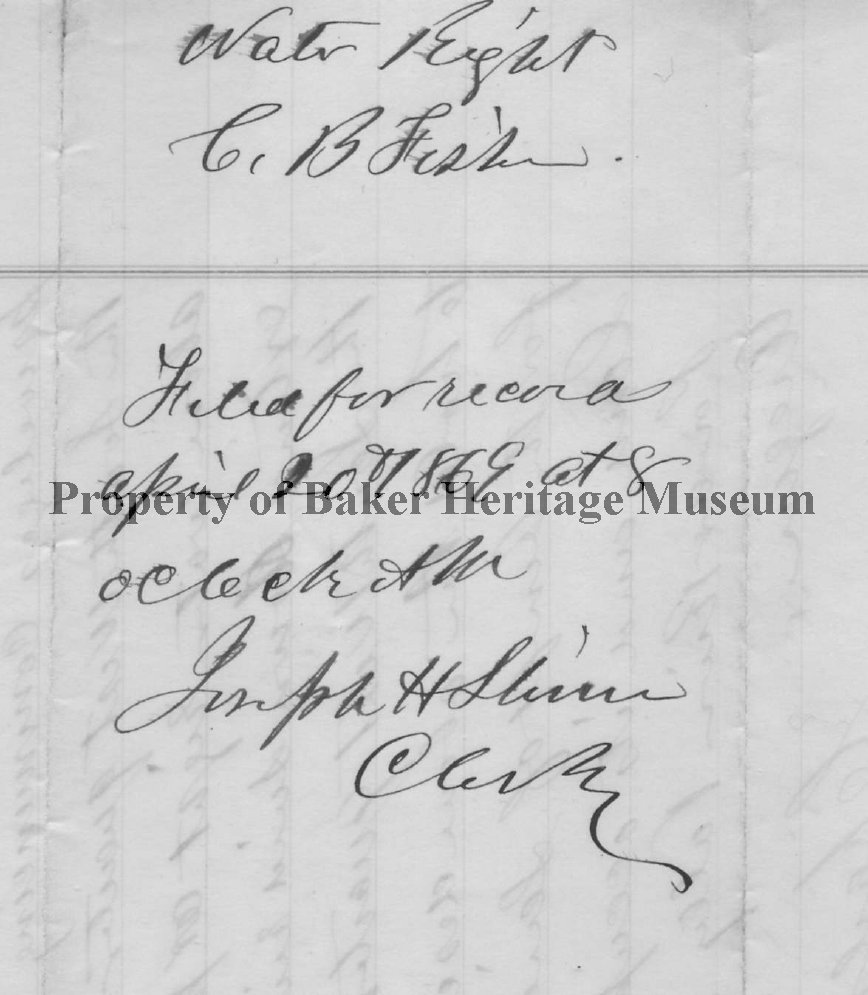 Water Right
C. B Fisher.
Filed for record
april 20th 1869 at 8
Property of Baker Heritage Museum
oclock AM
Joseph H Shinn
Clerk